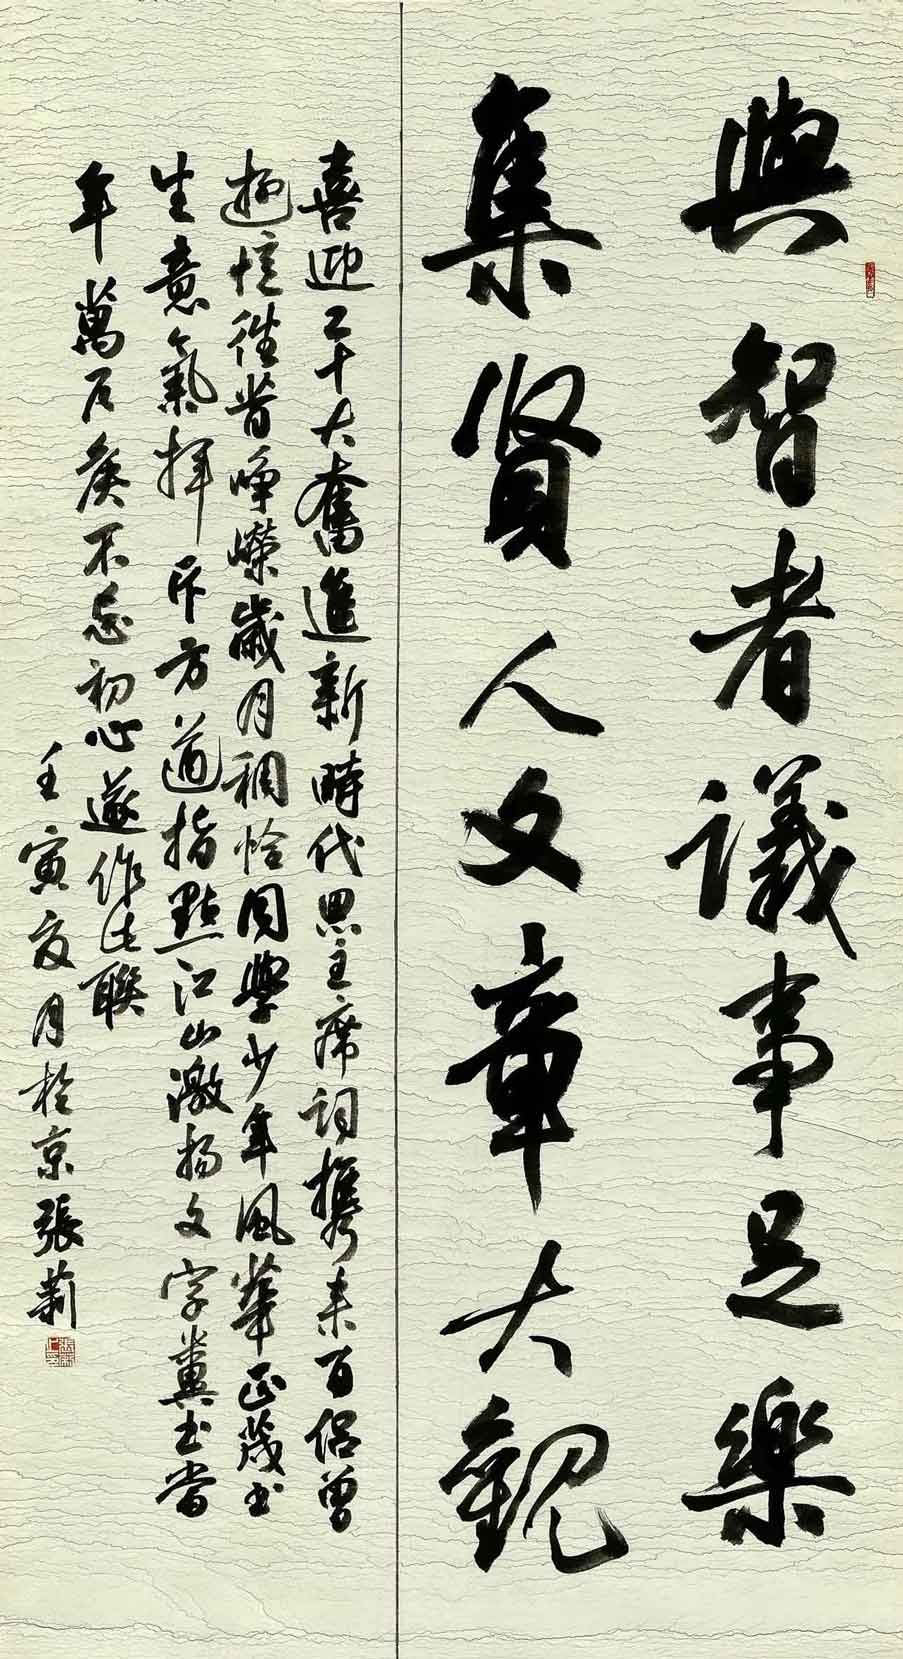 與智者議事足樂
集賢人文章大觀
喜迎二十大奮進新時代思主席詞攜來百侶曾
遊憶往昔崢嶸歲月稠恰同學少年風華正茂書
生意氣揮斥方遒指點江山激揚文字糞土當
年萬戶侯不忘初心遂作此聯
壬寅夏月於京張莉